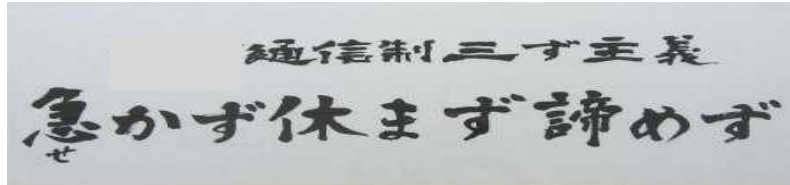 通信制三ず主義
急かず休まず諦めず
せ